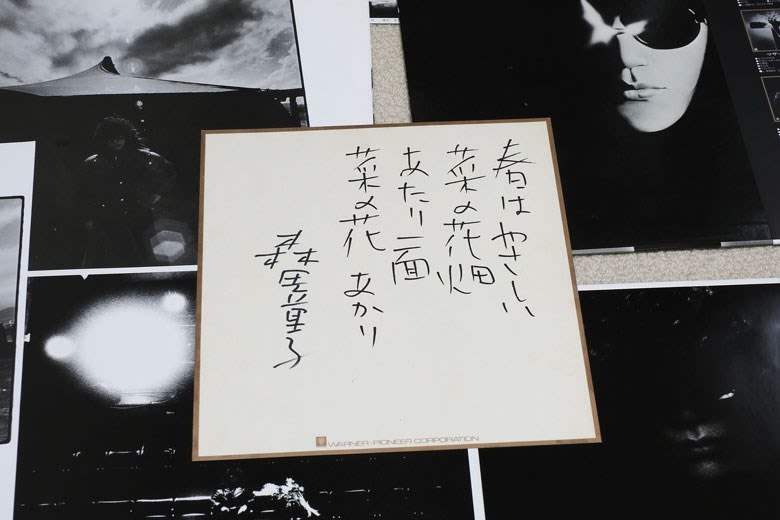 春はやさしい
菜の花畑
あたり一面
菜の花 あかり
森田童子
WARNER-PIONEER CORPORATION